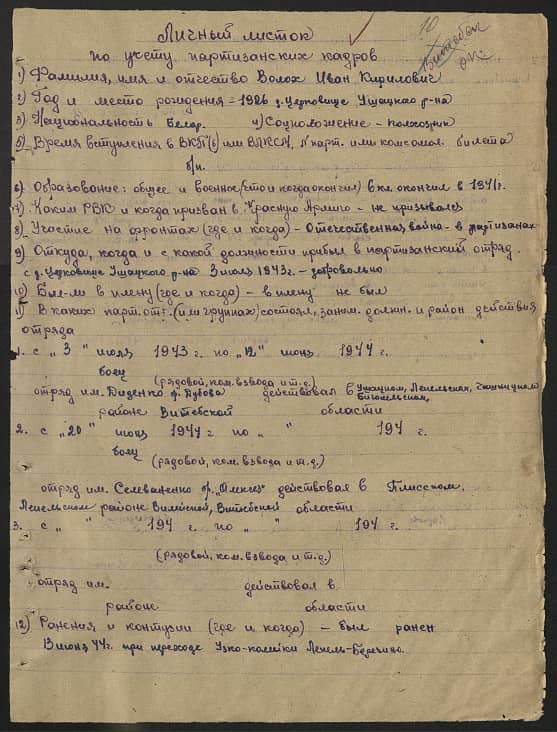 10
Витебск.
Личный листок
по учету партизанских кадров
1) Фамилия, имя и отчество Волох Иван Кирилович
2) Год и место рождения – 1926 д. Церковище Ушацкого р-на
3) Национальность Белор. 4) Соцположение – колхозник
5) Время вступления в ВКП(б) или ВЛКСМ, № парт. или комсомол. билета
б/п.
6) Образование: общее и военное (что и когда окончил) 8 кл. окончил в 1941г.
7) Каким РВК и когда призван в Красную Армию – не призывался
8) Участие на фронтах (где и когда) – Отечественная война – в партизанах
9) Откуда, когда и с какой должности прибыл в партизанский отряд
с д. Церковище Ушацкого р-на 3 июля 1943г. – добровольно
10) Был-ли в плену (где и когда) – в плену не был
11) В каких парт. отр. (или группах) состоял, заним. должн. и район действия
отряда
1. с "3" июля 1943 г. по "12" июня 1944 г.
боец
(рядовой, ком. взвода и т.д.)
отряд им. Диденко бр. Дубова действовал в Ушацком, Лепельском, Чашницком
районе Витебской области
2. с "20" июня 1944 г. по " " 194 г.
боец
(рядовой, ком. взвода и т.д.)
отряд им. Селеваненко бр. "Алексея" действовал в Плисском,
Лепельском районе Вилейской, Витебской области
3. с " " 194 г. по " " 194 г.
(рядовой, ком. взвода и т.д.)
отряд им. действовал в
районе области
12) Ранения и контузии (где и когда) – был ранен
13 июня 44г. при переходе Узко-колейки Лепель-Березино.